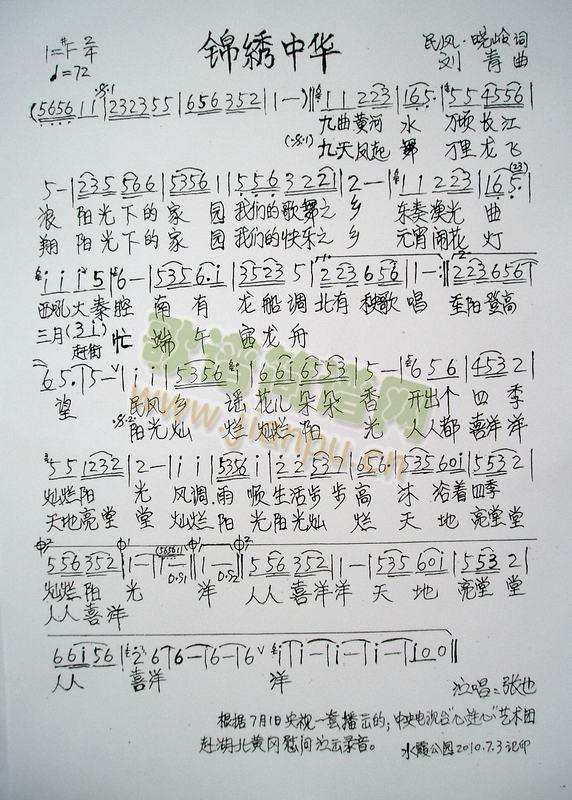 锦绣中华
1=#F 2/4
♩=72
民风·晓岭词
刘青曲
(5656 1 1 | 232355 | 656352 | 1 — ) | 1 1 223 | 165· | 55 4556 |
九曲黄河 水 万顷长江
九天凤起 舞 万里龙飞
5 — | 235 566 | 5356 1 | 5 5 6 3 2 2 1 | 2 — | 1 1 223 | 165· |
浪 阳光下的家 园 我们的歌舞之 乡 东秦渔光 曲
翔 阳光下的家 园 我们的快乐之 乡 元宵闹花 灯
西吼大秦腔 南 有 龙船调 北有 秧歌 唱 重阳登高
三月(3 i)赶街 忙 端 午 赛龙舟
65· | 5 — | i i | 5356 | 6 6 i 6553 | 5 — | 6 5 6 | 4532 |
望 民风乡 谣 花儿朵朵 香 开出个 四 季
阳光灿 烂 灿烂阳 光 人人都 喜洋洋
5 5 1232 | 2 — | i i | 5356 i | 2 2 5 3 7 | 656· | 535 60i | 5532 |
灿烂阳 光 风调雨 顺生活步步高 沐 浴着四季
天地亮堂 堂 灿烂阳 光阳光灿 烂 天 地 亮堂堂
灿烂阳 光 洋 人人喜洋洋 天 地 亮堂 堂
人人 喜洋
66i56 | 2 6 | 6 — | 6 — | 6 | i — | i — | i — | i 0 0 ‖
人人 喜洋 洋
演唱:张也
根据7月1日央视一套播出的;中央电视台“心连心”艺术团
赴湖北黄冈慰问演出录音。
水霞公园2010.7.3记印
歌谱简谱网
www.jianpu.cn